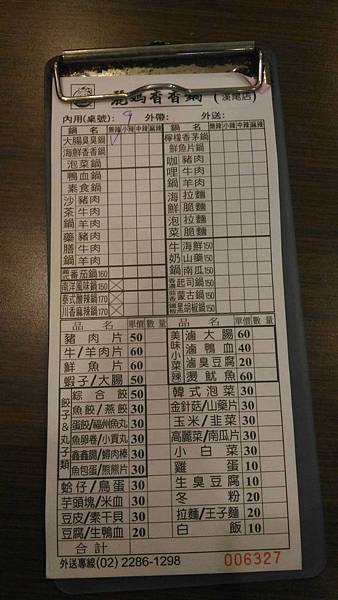 麗媽香香鍋(溪尾店)
內用(桌號): 9 外帶: 外送:
鍋 名 無辣 小辣 中辣 麻辣 鍋 名 無辣 小辣 中辣 麻辣
大腸臭臭鍋 檸檬香茅鍋
海鮮香香鍋 鮮魚片鍋
泡菜鍋 咖哩鍋 豬肉
鴨血鍋 牛肉
素食鍋 羊肉
沙茶鍋 豬肉 海鮮 拉麵
牛肉 脆麵
羊肉 泡菜 拉麵
藥膳鍋 豬肉 脆麵
牛肉 牛奶鍋 海鮮150
羊肉 山藥150
韓式番茄鍋160 南瓜150
南洋風味鍋150 起司鍋150
泰式酸辣鍋170 蒙古鍋150
川香麻辣鍋170 黑胡椒鍋150
品 名 單價 數量 品 名 單價 數量
豬肉片 50 美味小菜 滷大腸 60
牛/羊肉片 60 滷鴨血 40
鮮魚片 60 滷臭豆腐 20
蝦子/大腸 50 辣燙魷魚 60
餃子&丸子類 綜合餃 50 韓式泡菜 30
魚餃/燕餃 30 金針菇/山藥片 30
蛋餃/福州魚丸 30 玉米/韭菜 30
魚卵卷/小貢丸 30 高麗菜/南瓜片 30
鑫鑫腸/蟳肉棒 30 小白菜 30
魚包蛋/熊熊片 30 雞蛋 10
蛤仔/鳥蛋 30 生臭豆腐 10
芋頭塊/米血 30 冬粉 20
豆皮/素干貝 30 拉麵/王子麵 20
豆腐/生鴨血 20 白飯 10
合計
外送專線(02) 2286-1298 006327